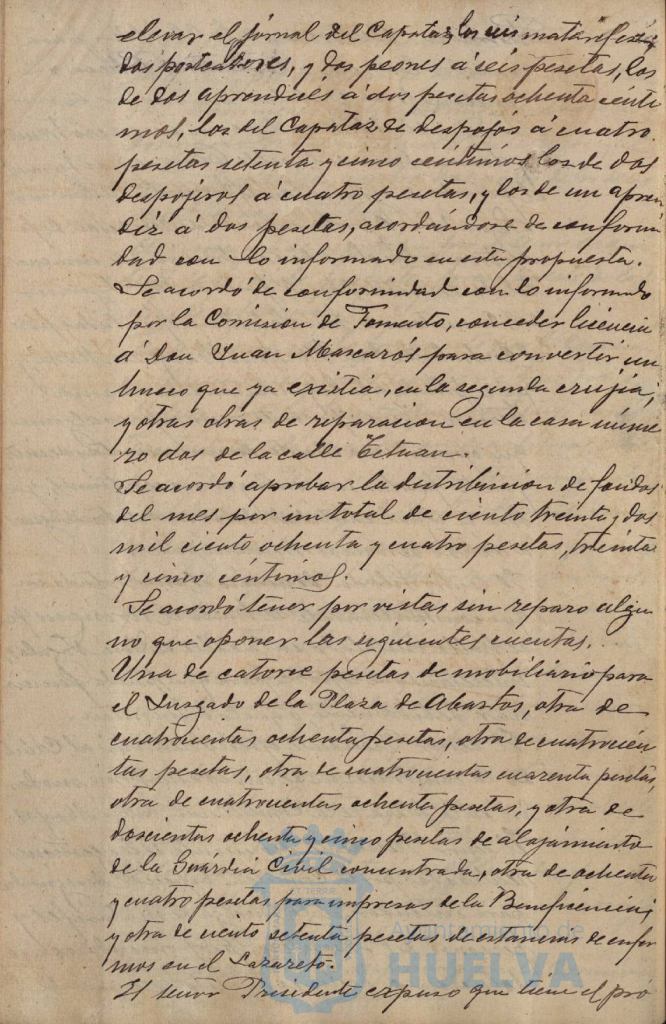 elevar el jornal del Capataz, los seis matarifes,
dos porteadores, y dos peones á seis pesetas, los
de dos aprendices á dos pesetas ochenta cénti
mos, los del Capataz de despojos á cuatro
pesetas setenta y cinco céntimos los de dos
despojeros á cuatro pesetas, y los de un apren
diz á dos pesetas, acordándose de conformi
dad con lo informado en esta propuesta.
Se acordó de conformidad con lo informado
por la Comision de Fomento, conceder licencia
á Don Juan Mascarós para convertir un
hueco que ya existia, en la segunda crujia,
y otras obras de reparacion en la casa núme
ro dos de la calle Tetuan.
Se acordó aprobar la distribucion de fondos
del mes por un total de ciento treinta y dos
mil ciento ochenta y cuatro pesetas, treinta
y cinco céntimos.
Se acordó tener por vistas sin reparo algu
no que oponer las siguientes cuentas.
Una de catorce pesetas de mobiliario para
el Juzgado de la Plaza de Abastos, otra de
cuatrocientas ochenta pesetas, otra de cuatrocien
tas pesetas, otra de cuatrocientas cuarenta pesetas,
otra de cuatrocientas ochenta pesetas, y otra de
doscientas ochenta y cinco pesetas de alojamiento
de la Guardia Civil concentrada, otra de ochenta
y cuatro pesetas para impresos de la Beneficencia,
y otra de ciento setenta pesetas de estancias de enfer
mos en el Lazareto.
El señor Presidente expuso que tiene el pró
Ayuntamiento de
HUELVA